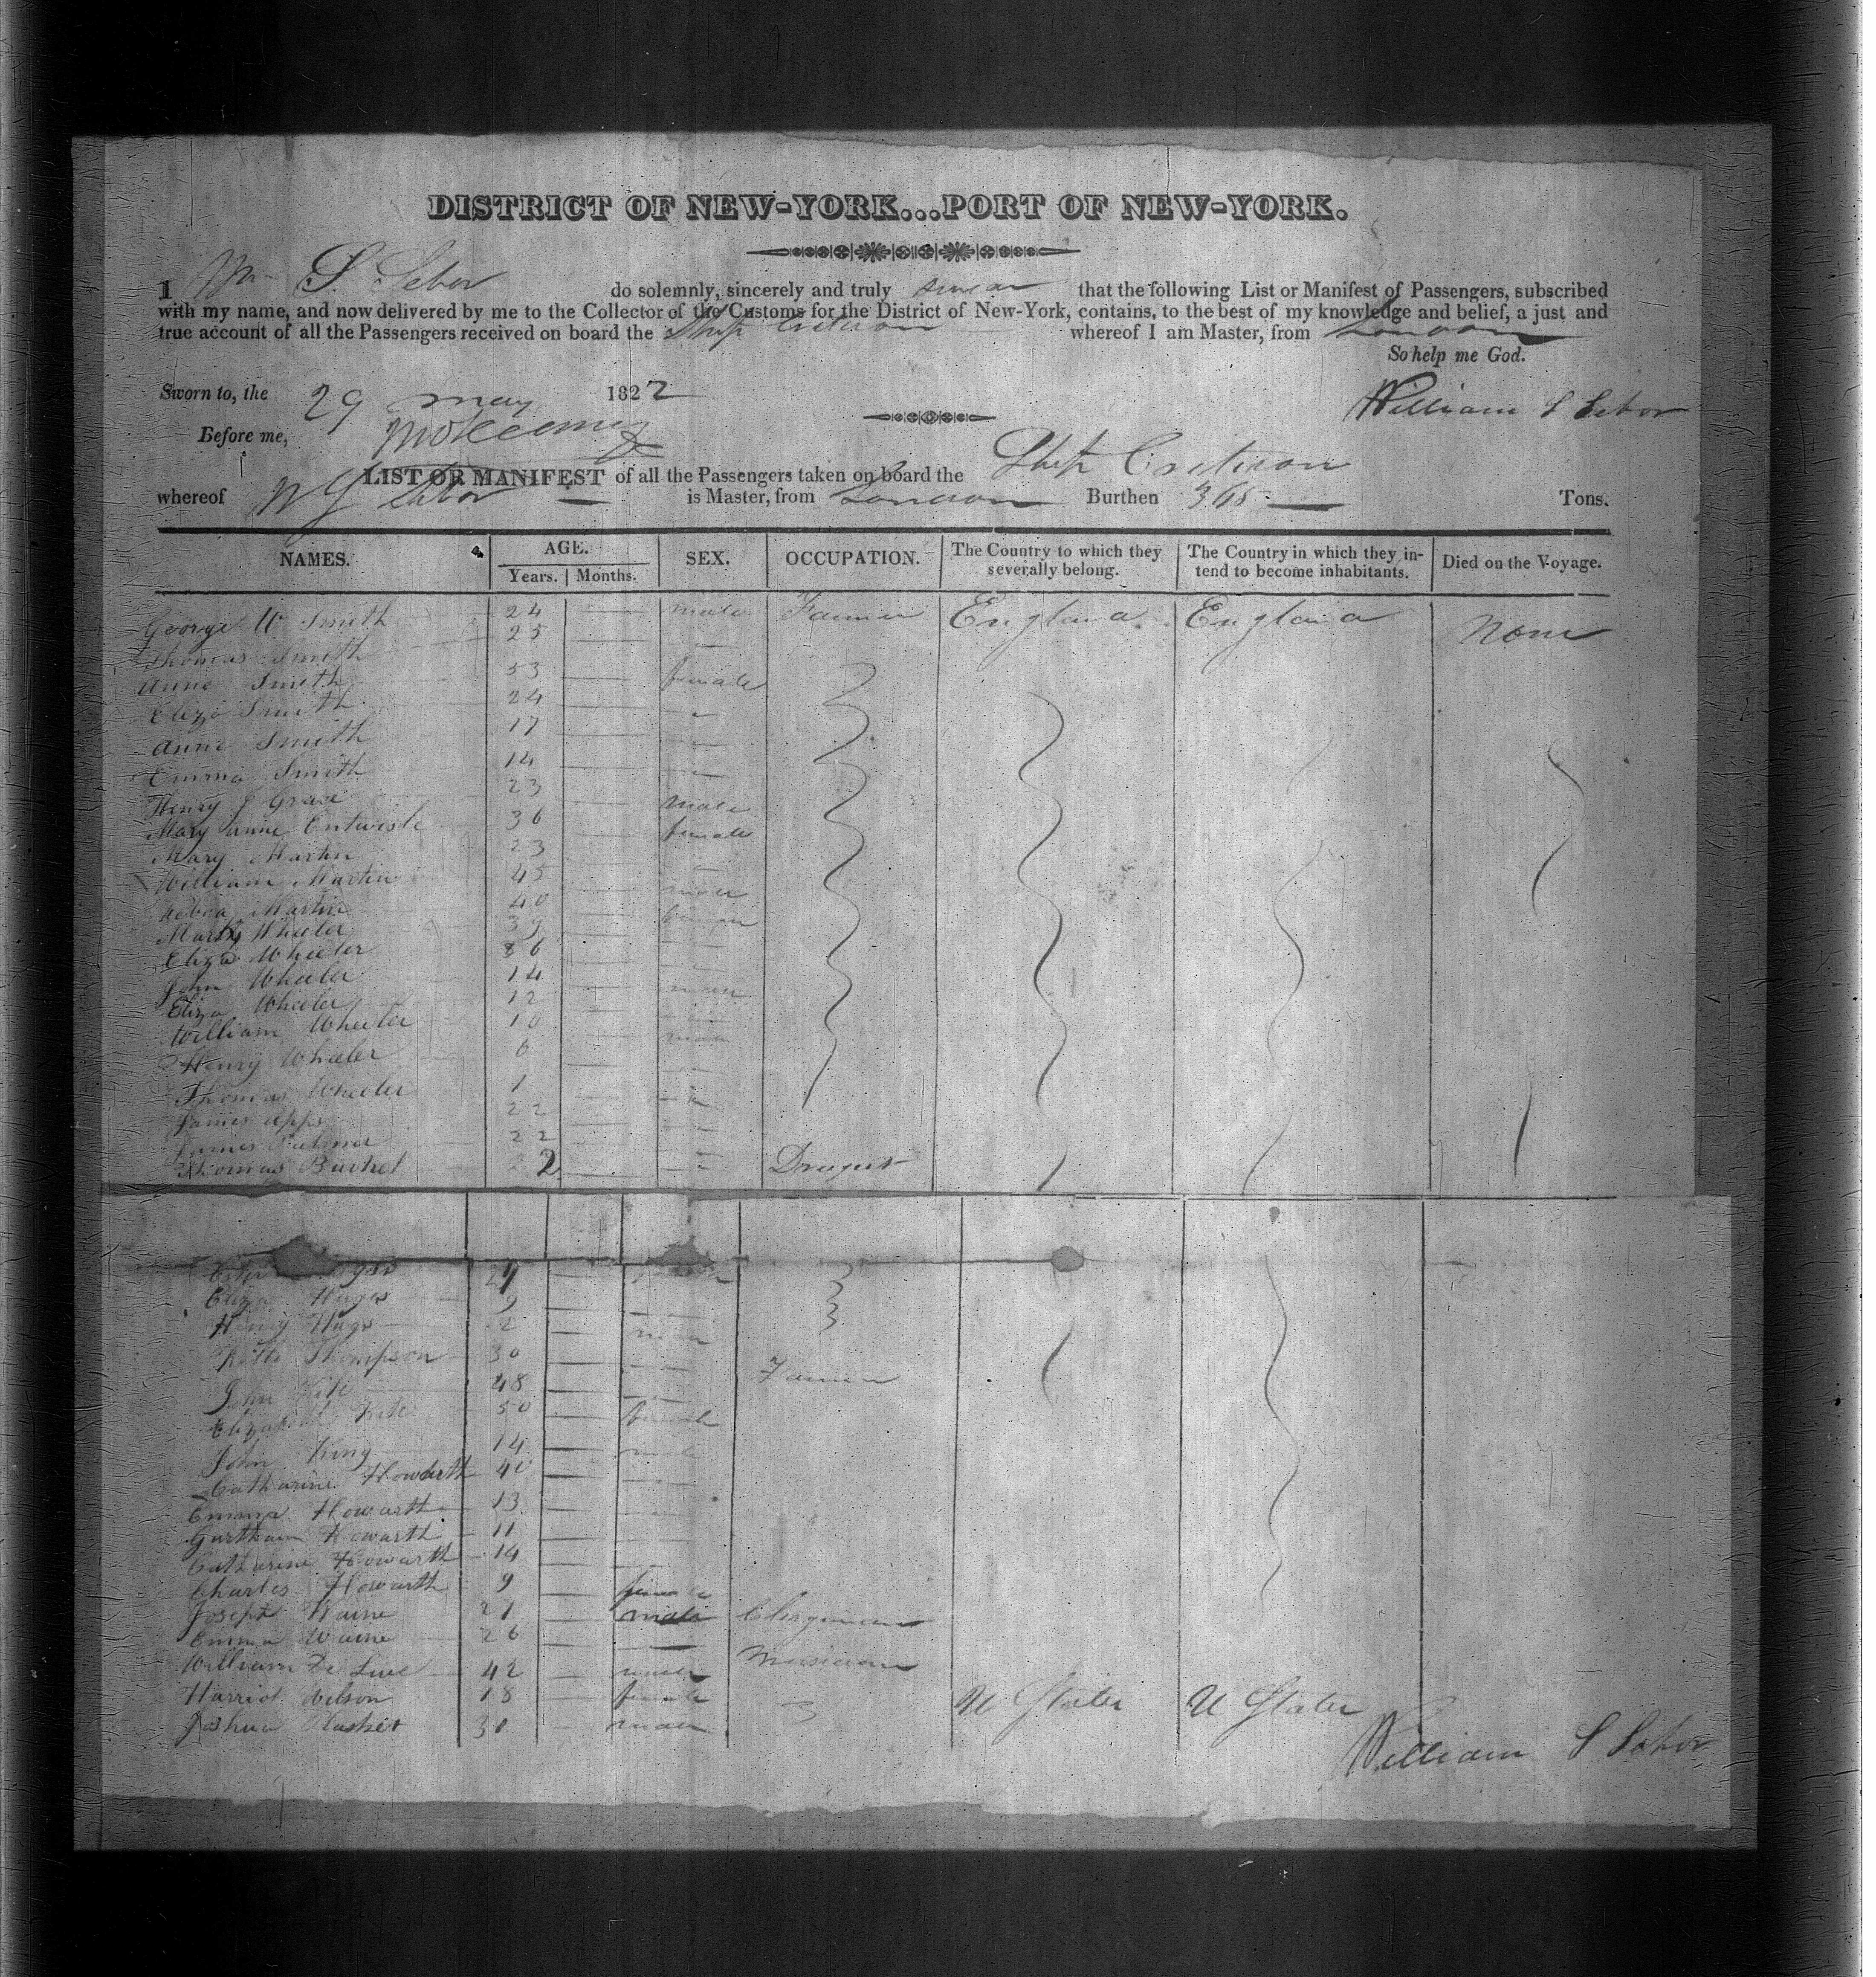 DISTRICT OF NEW-YORK...PORT OF NEW-YORK.
I Wm S. Sebor do solemnly, sincerely and truly swear that the following List or Manifest of Passengers, subscribed
with my name, and now delivered by me to the Collector of the Customs for the District of New-York, contains, to the best of my knowledge and belief, a just and
true account of all the Passengers received on board the Ship Criterion whereof I am Master, from London
So help me God.
Sworn to, the 29 may 1822
William S Sebor
Before me,
LIST OR MANIFEST of all the Passengers taken on board the Ship Criterion
whereof Sebor is Master, from London Burthen Tons.
NAMES. AGE. SEX. OCCUPATION. The Country to which they severally belong. The Country in which they in-tend to become inhabitants. Died on the Voyage.
Years. Months.
George W Smith 24 male Farmer England England None
Thomas Smith 25
Anne Smith 53 female
Eliza Smith 24
Anne Smith 17
Emma Smith 14
Henry J Grace 23 male
Mary Anne Entwisle 36 female
Mary Martin 23
William Martin 45 male
Martin 40 female
Wheeler 39
Eliza Wheeler 36
John Wheeler 14 male
Eliza Wheeler 12
William Wheeler 10 male
Henry Wheeler 6
Thomas Wheeler 1
James Apps 22
James 22
Thomas 22 Drugist
Eliza Huges 9
Henry Hugs 2 male
Thompson 30
John 48 Farmer
Elizabeth 50 female
John King 14 male
Catharine Howarth 40
Emma Howarth 13
Howarth 11
Catharine Howarth 14
Charles Howarth 9 female
Joseph Waine 21 male Clergyman
Emma Waine 26
William De Luce 42 male Musician
Harriot Wilson 18 female U States U States
Joshua 30 male
William S Sebor